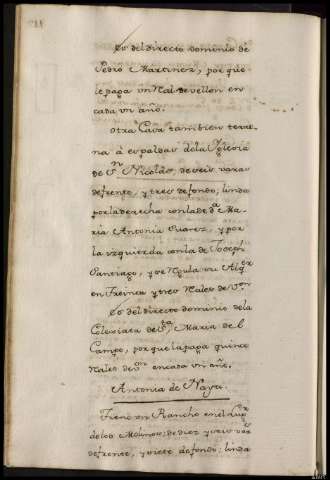 Es del directo dominio de
Pedro Martinez, por que
le paga un Real de vellon en
cada un año.
Otra Casa tambien terre-
na à espaldas de la Yglesia
de Sn. Nicolàs, de seis varas
de frente, y tres de fondo; linda
por la derecha con la de Da. Ma-
ria Antonia Suarez, y por
la izquierda con la de Joseph
Santiago, y se regula su Alqer.
en Treinta y tres Rales de Von.
Es del directo dominio de la
Colexiata de Sta. Maria de l
Campo, porque la paga quince
Rales de Von. en cada un año.
Antonia de Naya.
Tiene un Rancho en el lugr.
de los Molinos, de diez y seis vas.
de frente, y siete de fondo; linda